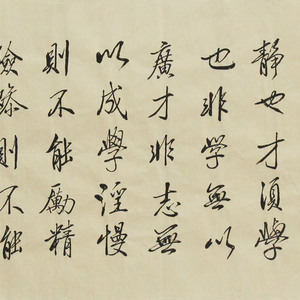 靜也才須學
也非學無以
廣才非志無
以成學淫慢
則不能勵精
險躁則不能